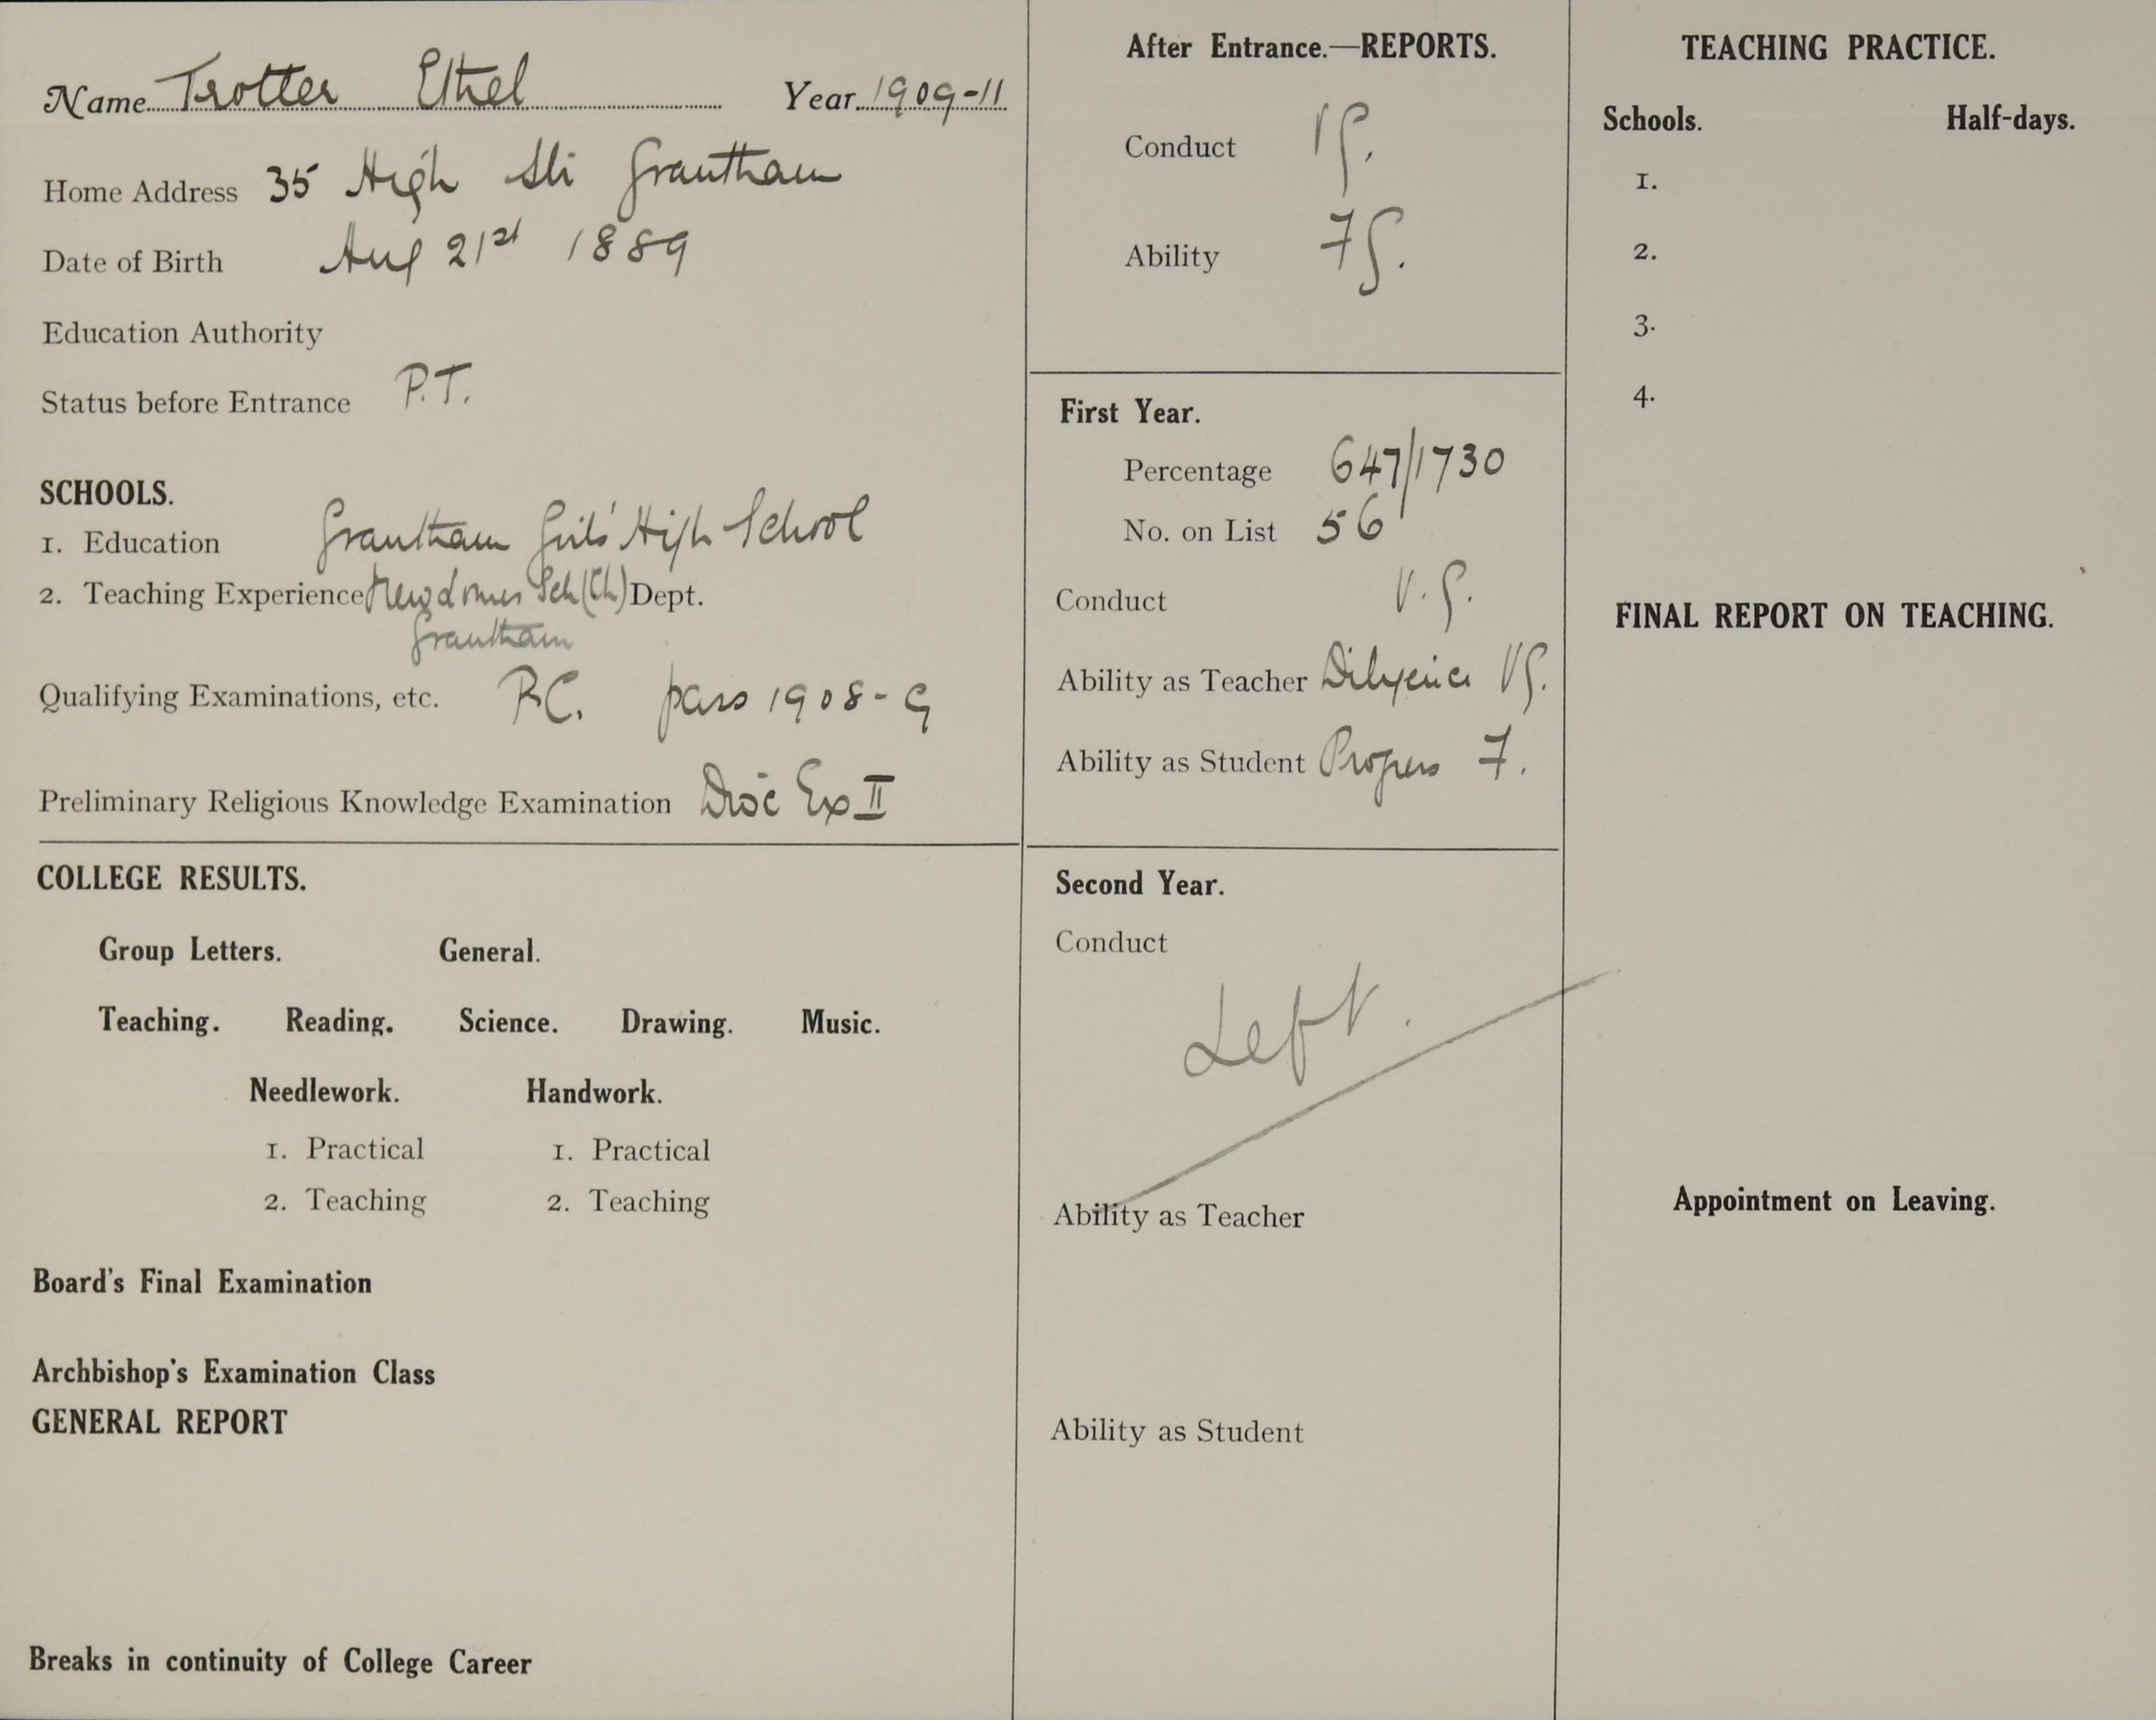 Name Trotter Ethel Year 1909-11
Home Address 35 High St: Grantham
Date of Birth Aug 21st 1889
Education Authority
Status before Entrance P.T.
SCHOOLS.
1. Education Grantham Girls' High School
2. Teaching Experience Sch (Ch) Dept.
Grantham
Qualifying Examinations, etc. P.C. pass 1908-9
Preliminary Religious Knowledge Examination Dioc Ex II
COLLEGE RESULTS.
Group Letters. General.
Teaching. Reading. Science. Drawing. Music.
Needlework. Handwork.
1. Practical 1. Practical
2. Teaching 2. Teaching
Board's Final Examination
Archbishop's Examination Class
GENERAL REPORT
Breaks in continuity of College Career
After Entrance.—REPORTS.
Conduct VG.
Ability FG.
First Year.
Percentage 647/1730
No. on List 56
Conduct V.G.
Ability as Teacher Diligence VG.
Ability as Student Progress F.
Second Year.
Conduct
Left.
Ability as Teacher
Ability as Student
TEACHING PRACTICE.
Schools. Half-days.
1.
2.
3.
4.
FINAL REPORT ON TEACHING.
Appointment on Leaving.